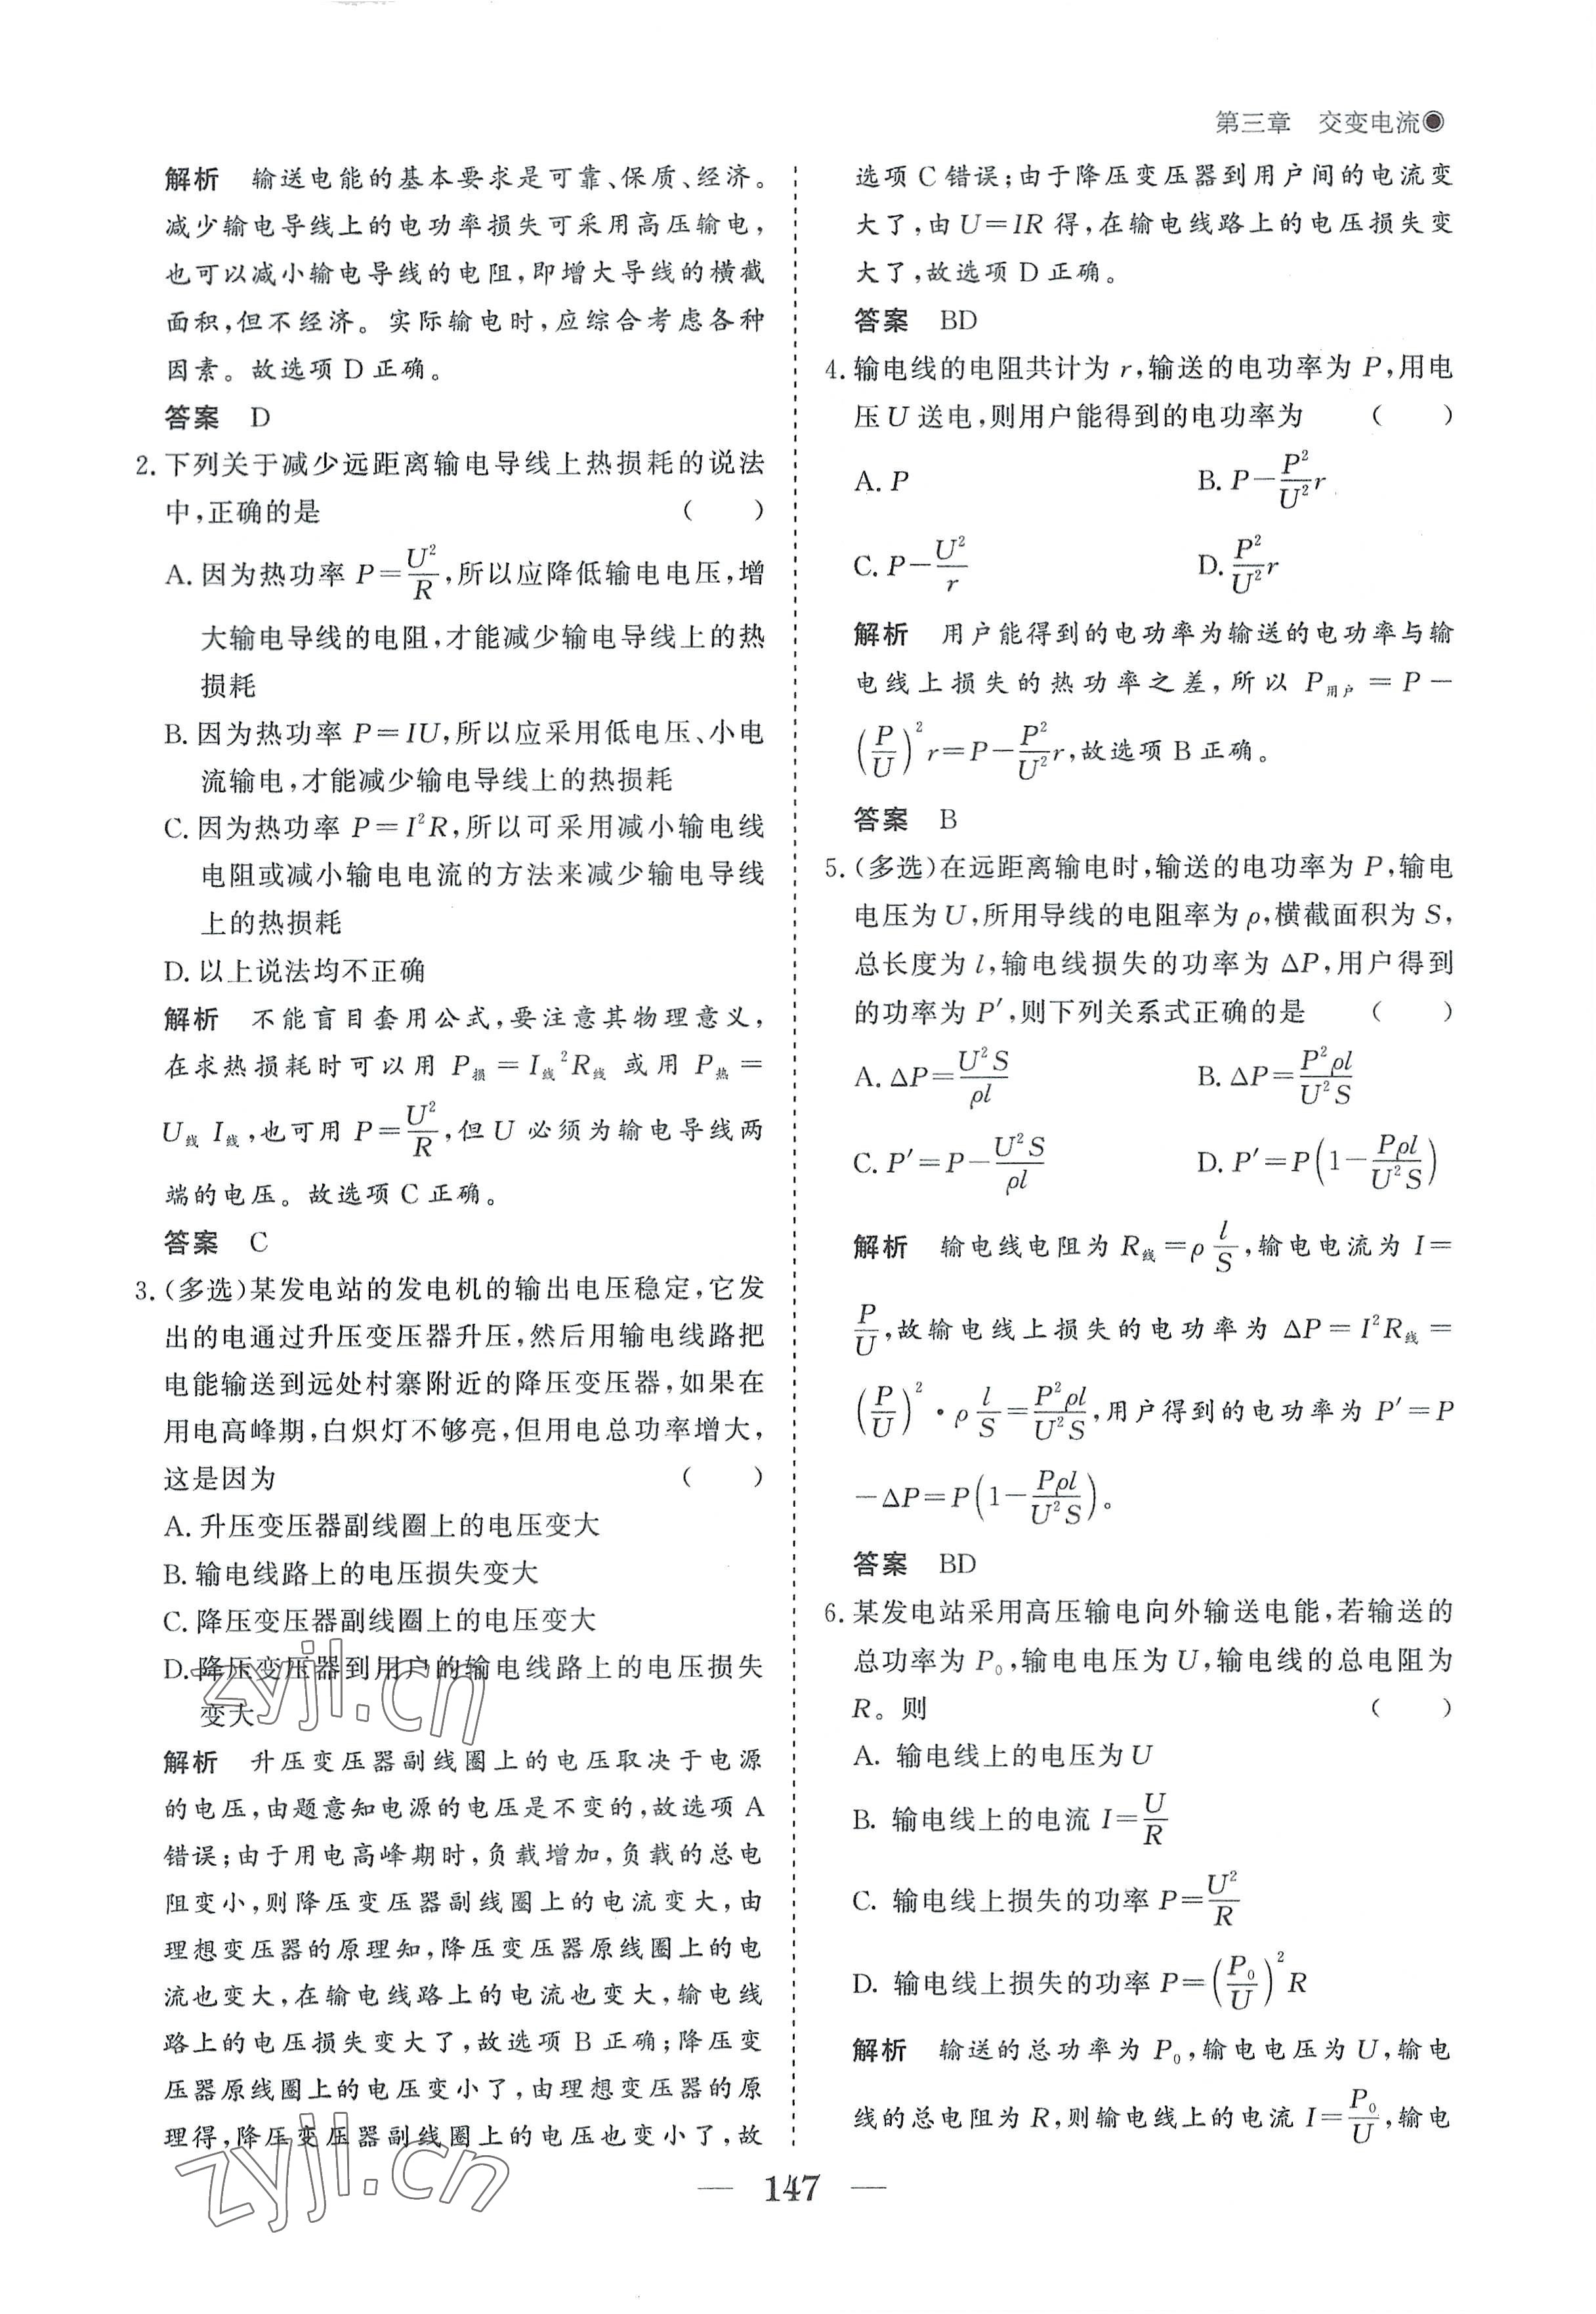 第三章 交变电流
解析 输送电能的基本要求是可靠、保质、经济。
减少输电导线上的电功率损失可采用高压输电,
也可以减小输电导线的电阻,即增大导线的横截
面积,但不经济。实际输电时,应综合考虑各种
因素。故选项 D 正确。
答案 D
2. 下列关于减少远距离输电导线上热损耗的说法
中,正确的是 ( )
A. 因为热功率 P=U²/R,所以应降低输电电压,增
大输电导线的电阻,才能减少输电导线上的热
损耗
B. 因为热功率 P=IU,所以应采用低电压、小电
流输电,才能减少输电导线上的热损耗
C. 因为热功率 P=I²R,所以可采用减小输电线
电阻或减小输电电流的方法来减少输电导线
上的热损耗
D. 以上说法均不正确
解析 不能盲目套用公式,要注意其物理意义,
在求热损耗时可以用 P损=I线²R线 或用 P热=
U线 I线,也可用 P=U²/R,但 U 必须为输电导线两
端的电压。故选项 C 正确。
答案 C
3. (多选)某发电站的发电机的输出电压稳定,它发
出的电通过升压变压器升压,然后用输电线路把
电能输送到远处村寨附近的降压变压器,如果在
用电高峰期,白炽灯不够亮,但用电总功率增大,
这是因为 ( )
A. 升压变压器副线圈上的电压变大
B. 输电线路上的电压损失变大
C. 降压变压器副线圈上的电压变大
D. 降压变压器到用户的输电线路上的电压损失
变大
解析 升压变压器副线圈上的电压取决于电源
的电压,由题意知电源的电压是不变的,故选项 A
错误;由于用电高峰期时,负载增加,负载的总电
阻变小,则降压变压器副线圈上的电流变大,由
理想变压器的原理知,降压变压器原线圈上的电
流也变大,在输电线路上的电流也变大,输电线
路上的电压损失变大了,故选项 B 正确;降压变
压器原线圈上的电压变小了,由理想变压器的原
理得,降压变压器副线圈上的电压也变小了,故
选项 C 错误;由于降压变压器到用户间的电流变
大了,由 U=IR 得,在输电线路上的电压损失变
大了,故选项 D 正确。
答案 BD
4. 输电线的电阻共计为 r,输送的电功率为 P,用电
压 U 送电,则用户能得到的电功率为 ( )
A. P B. P−P²/U² r
C. P−U²/r D. P²/U² r
解析 用户能得到的电功率为输送的电功率与输
电线上损失的热功率之差,所以 P用户=P−
(P/U)²r=P−P²/U² r,故选项 B 正确。
答案 B
5. (多选)在远距离输电时,输送的电功率为 P,输电
电压为 U,所用导线的电阻率为 ρ,横截面积为 S,
总长度为 l,输电线损失的功率为 ΔP,用户得到
的功率为 P′,则下列关系式正确的是 ( )
A. ΔP=U²S/ρl B. ΔP=P²ρl/U²S
C. P′=P−U²S/ρl D. P′=P(1−Pρl/U²S)
解析 输电线电阻为 R线=ρ l/S,输电电流为 I=
P/U,故输电线上损失的电功率为 ΔP=I²R线=
(P/U)²·ρ l/S=P²ρl/U²S,用户得到的电功率为 P′=P
−ΔP=P(1−Pρl/U²S)。
答案 BD
6. 某发电站采用高压输电向外输送电能,若输送的
总功率为 P₀,输电电压为 U,输电线的总电阻为
R。则 ( )
A. 输电线上的电压为 U
B. 输电线上的电流 I=U/R
C. 输电线上损失的功率 P=U²/R
D. 输电线上损失的功率 P=(P₀/U)²R
解析 输送的总功率为 P₀,输电电压为 U,输电
线的总电阻为 R,则输电线上的电流 I=P₀/U,输电
— 147 —
zyjl.cn
zyjl.cn